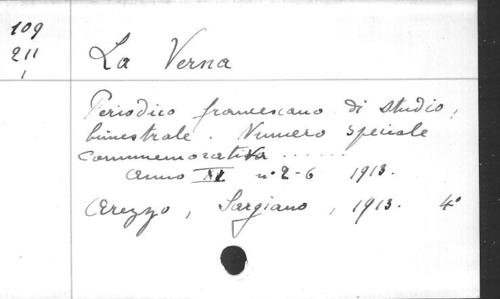 109
211
1
La Verna
Periodico francescano di studio,
bimestrale. Numero speciale
commemorativo ......
Anno XI n° 2-6 1913.
Arezzo, Sargiano, 1913. 4°